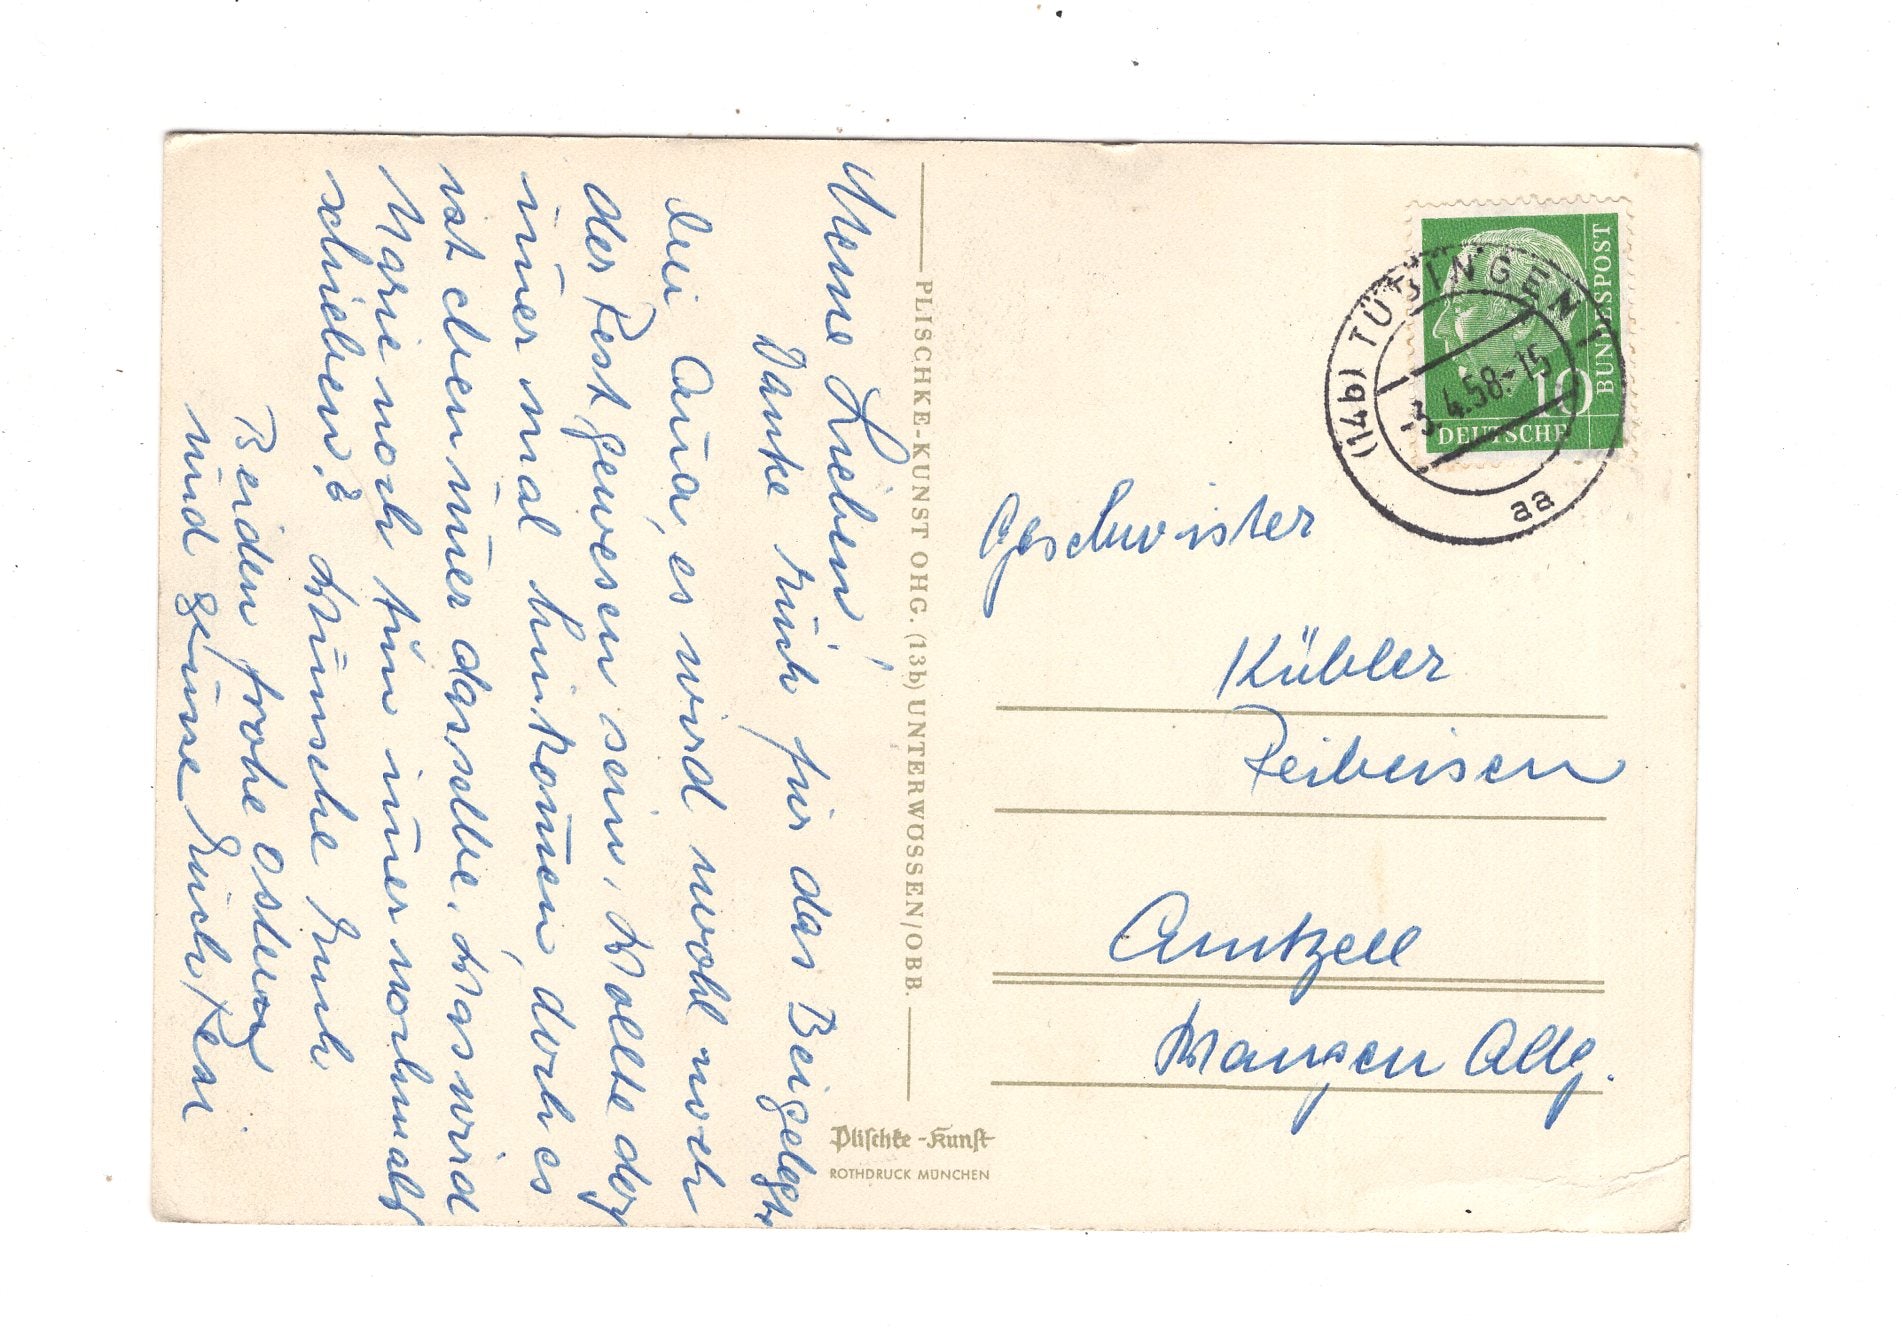 Meine Lieben!
Danke Euch für das Beigelegte
bei Anna, es wird wohl noch
der Rest gewesen sein. Wollte doch
im̄er mal hinkom̄en, doch es
ist eben im̄er dasselbe. Was wird
Marie noch tun im̄er nochmals
schieben? Wünsche Euch
Beiden frohe Ostern
und grüsse Euch
PLISCHKE-KUNST OHG. (13b) UNTERWÖSSEN/OBB.
Plischke-Kunst
ROTHDRUCK MÜNCHEN
(14b) TÜBINGEN 1
-3.4.58.-15
aa
DEUTSCHE
BUNDESPOST
10
Geschwister
Kübler
Reibeisen
Amtzell
Wangen Allg.